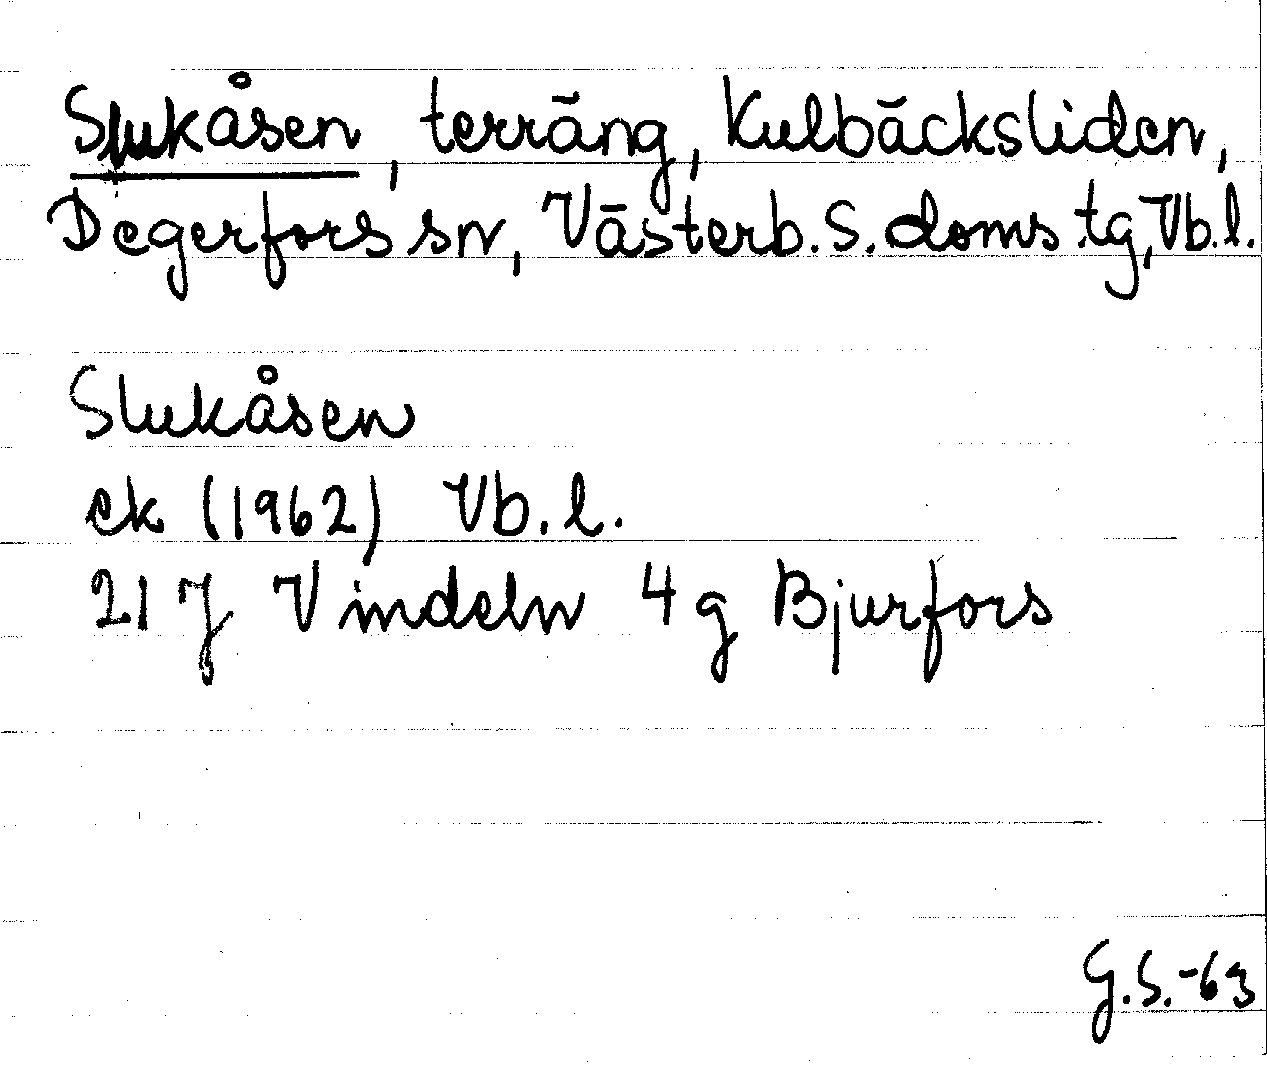 Slukåsen, terräng, Kulbäcksliden,
Degerfors sn, Västerb. S. doms.tg, Vb.l.
Slukåsen
ek (1962) Vb. l.
21 J Vindeln 4 g Bjurfors
G.S.-63